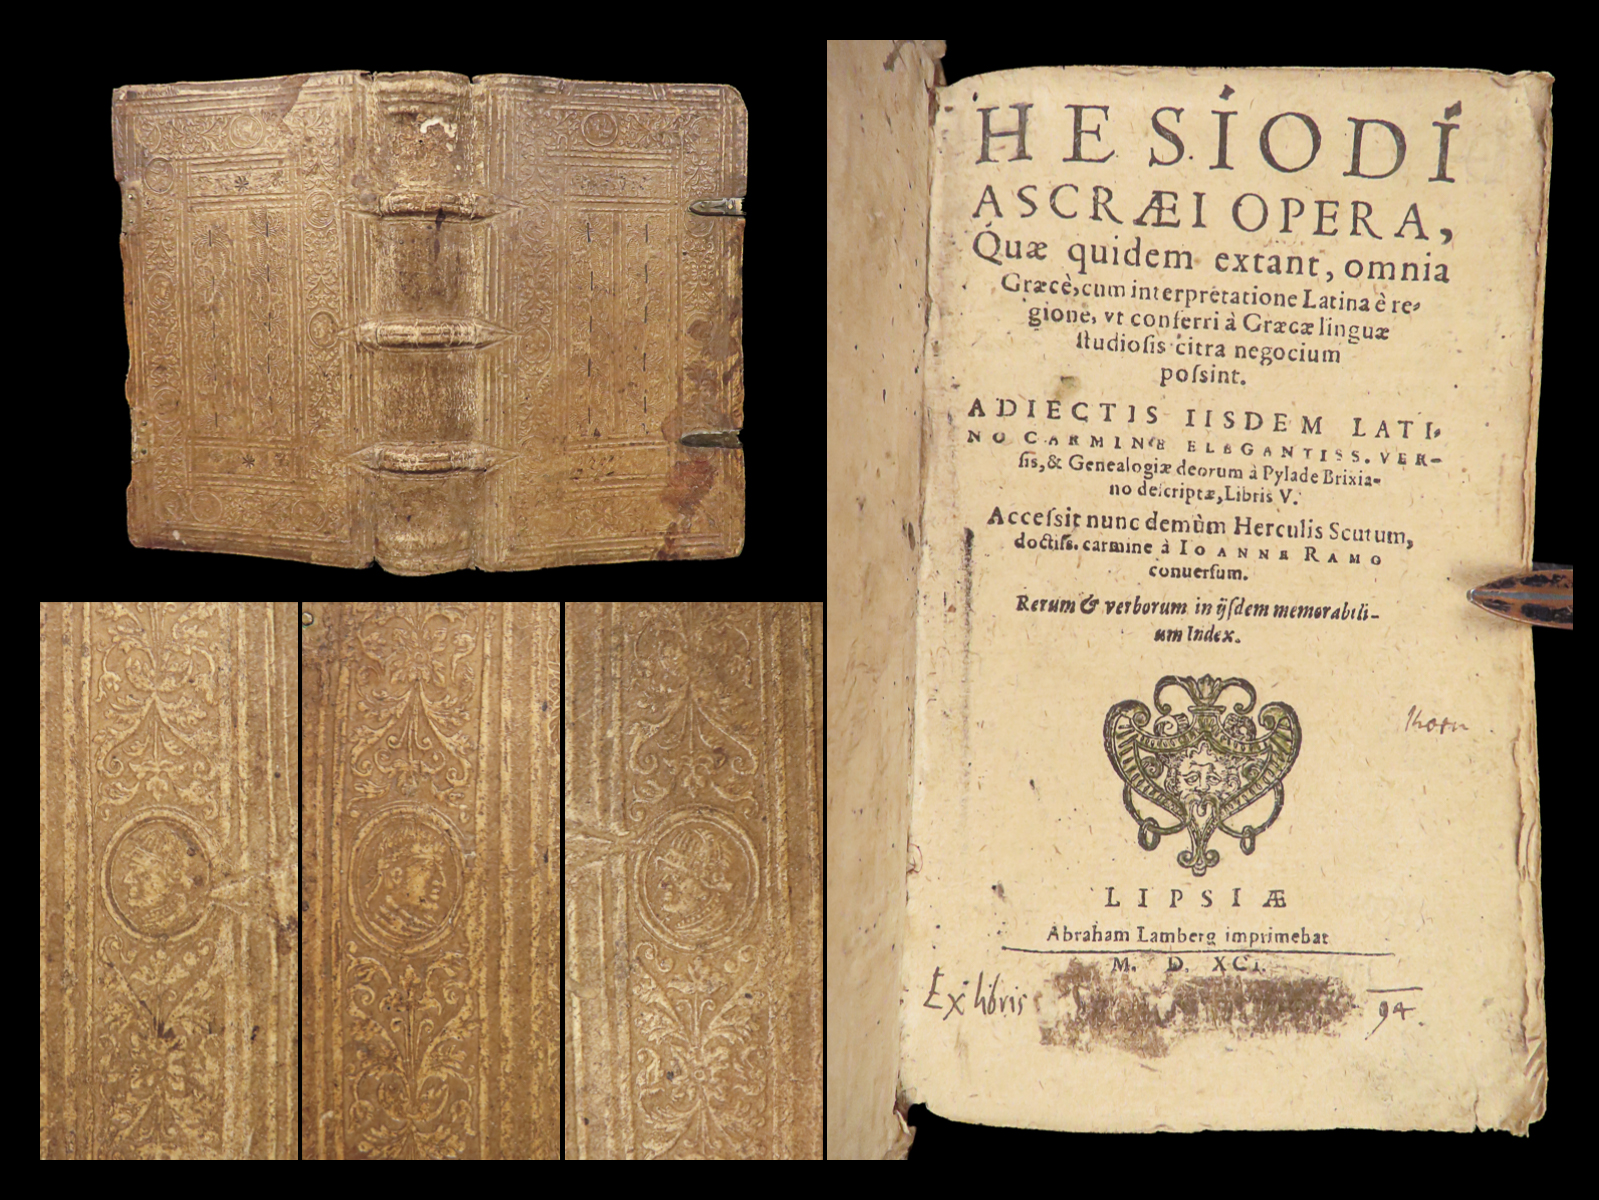 HESIODI
ASCRÆI OPERA,
Quæ quidem extant, omnia
Græcè, cum interpretatione Latina è re-
gione, vt conferri à Græcæ linguæ
ſtudioſis citra negocium
poſsint.
ADIECTIS IISDEM LATI-
NO CARMINE ELEGANTISS. VER-
ſis, & Genealogiæ deorum à Pylade Brixia-
no deſcriptæ, Libris V.
Acceſsit nunc demùm Herculis Scutum,
doctiſs. carmine à IOANNE RAMO
conuerſum.
Rerum & verborum in ijſdem memorabili-
um Index.
LIPSIÆ
Abraham Lamberg imprimebat
M. D. XCI.
Ex libris
94.